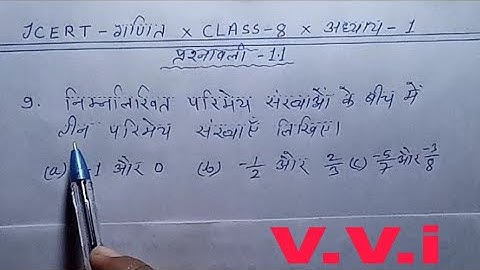 JCERT - गणित × CLASS-8 × अध्याय - 1
प्रश्नावली - 1.1
9. निम्नलिखित परिमेय संख्याओं के बीच में
तीन परिमेय संख्याएँ लिखिए।
(a) 1 और 0 (b) -1/2 और 2/3 (c) -5/7 और -3/8
V.V.i